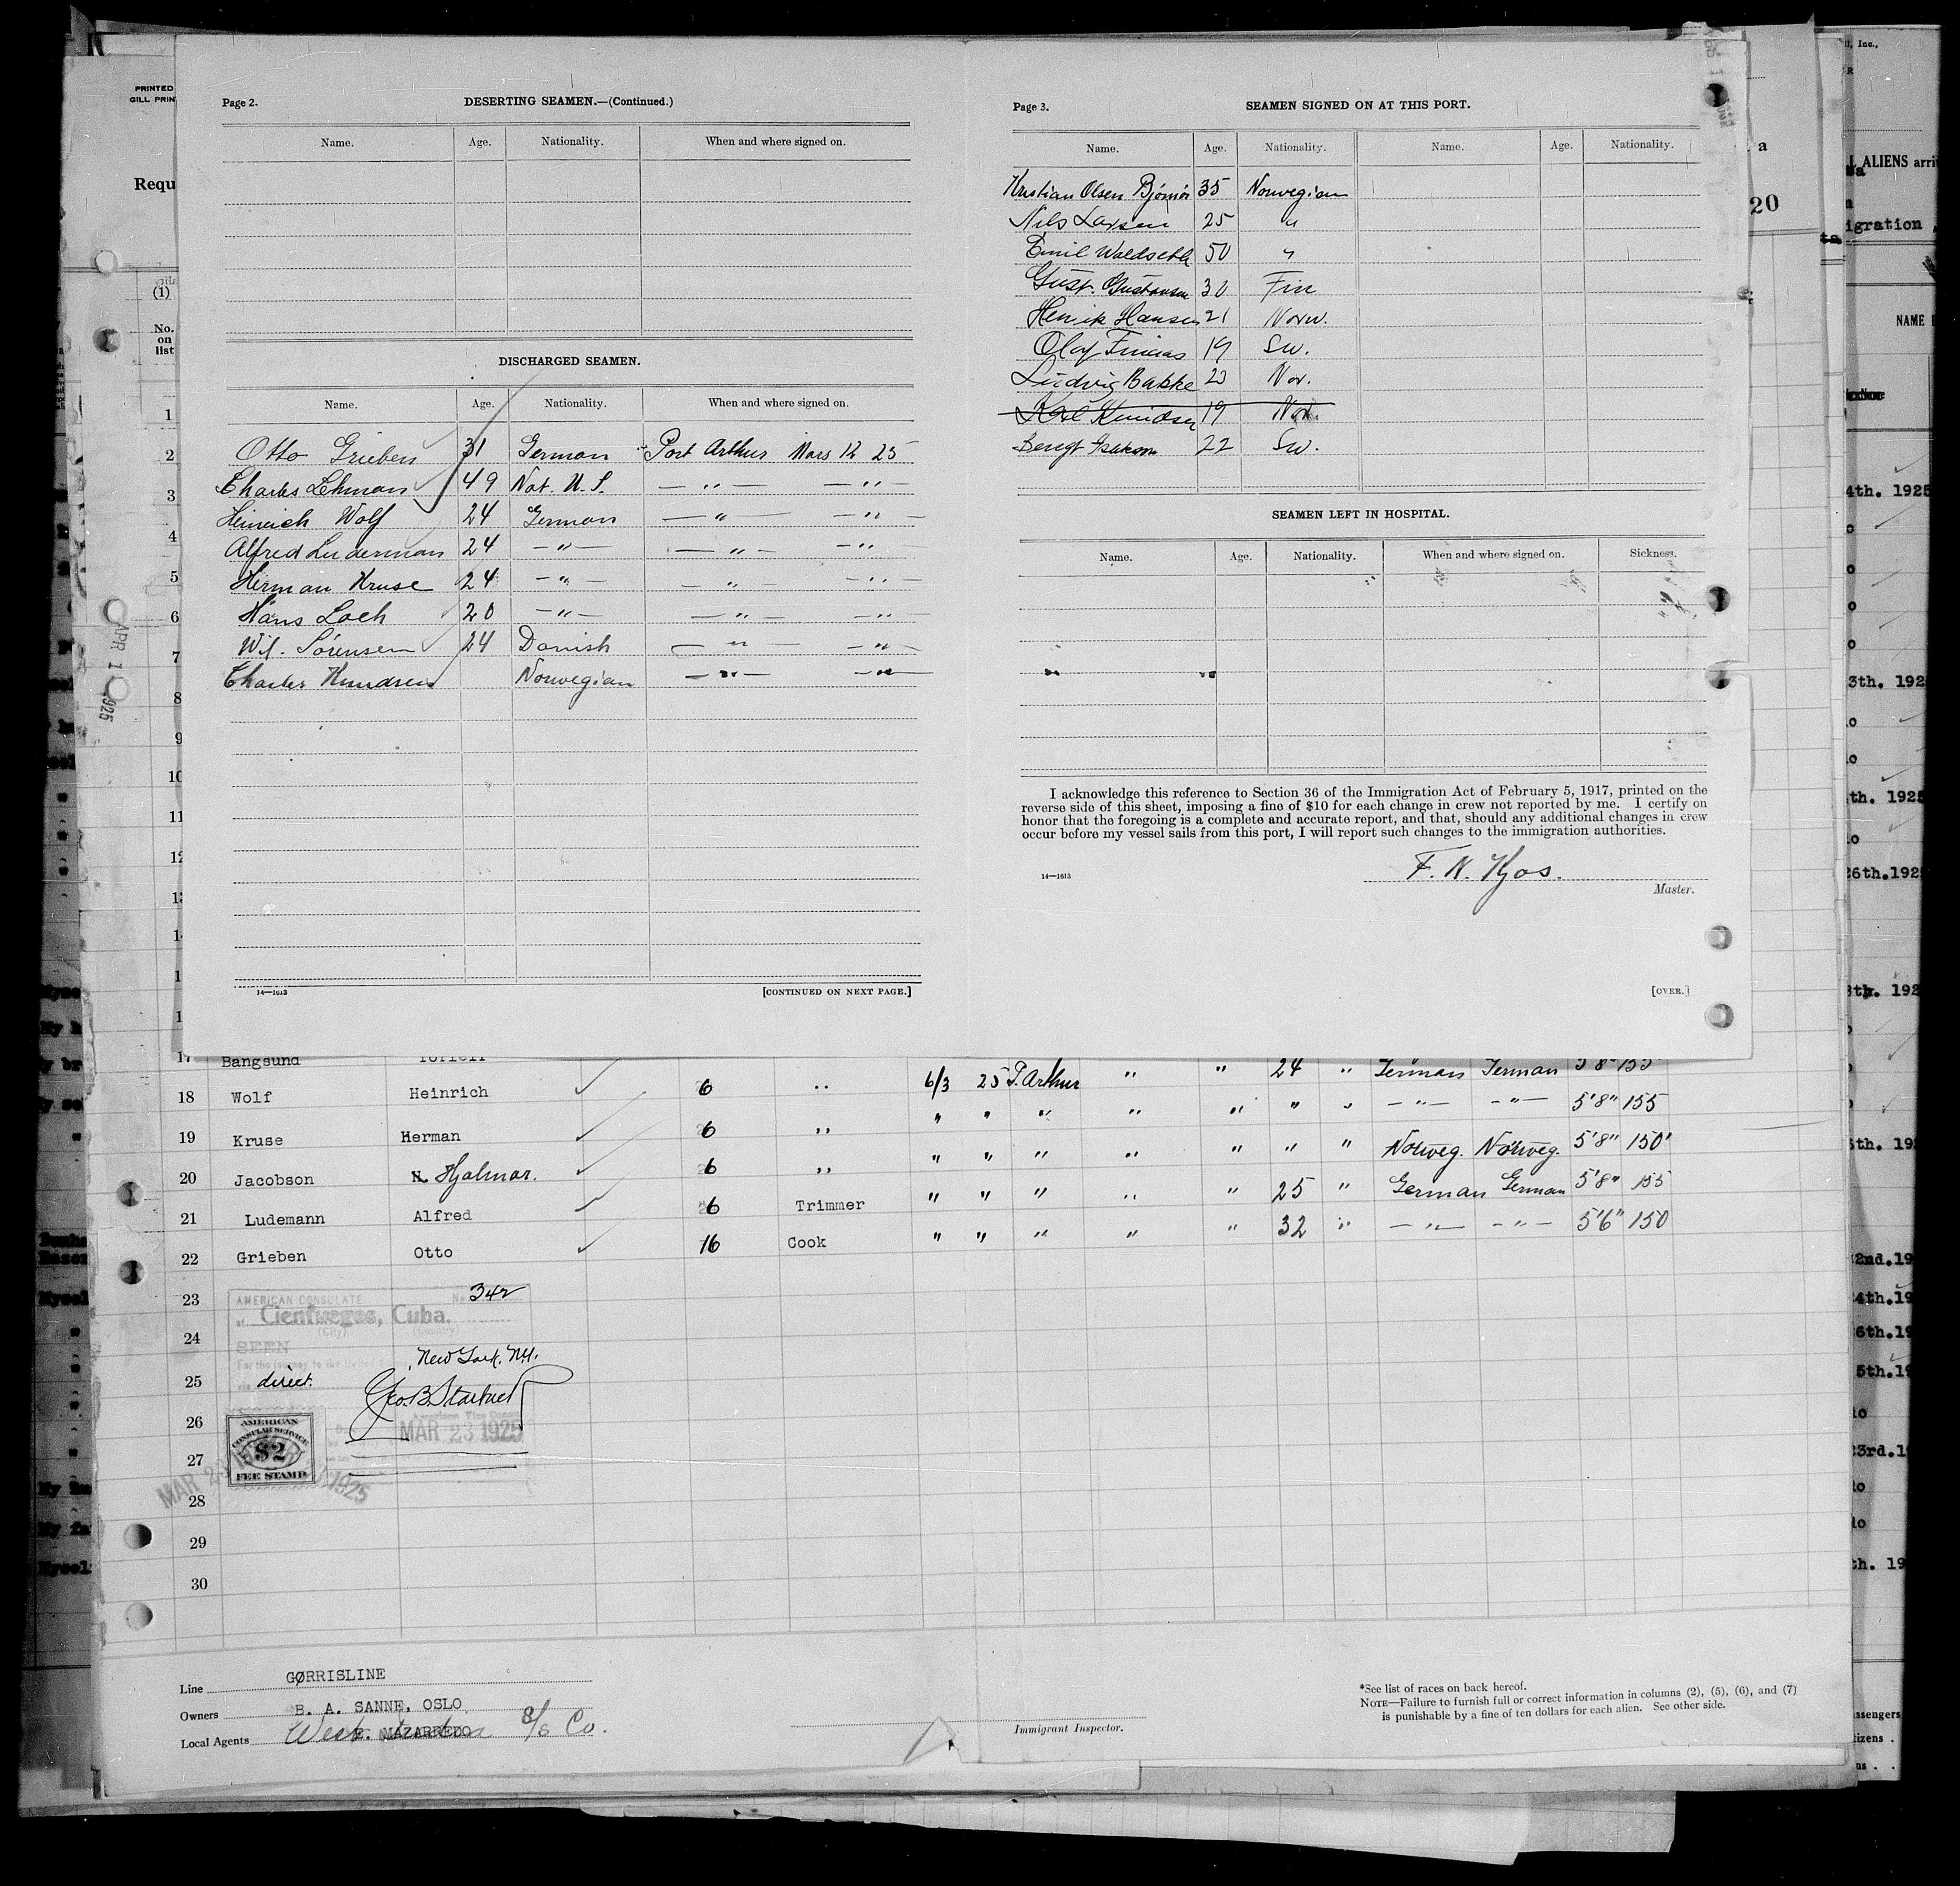 Page 2. DESERTING SEAMEN.—(Continued.)
Name. Age. Nationality. When and where signed on.
DISCHARGED SEAMEN.
Name. Age. Nationality. When and where signed on.
Otto Grieben 31 German Port Arthur Mars 12 25
Charles Lehman 49 Nat. U.S. — " — — " —
Heinrich Wolf 24 German — " — — " —
Alfred Luderman 24 — " — — " — — "
Herman Kruse 24 — " — — " — — " —
Hans Loch 20 — " — — " — — " —
Wil. Sörensen 24 Danish — " — — " —
Charles Knudsen Norwegian — " — — " —
14—1613 [CONTINUED ON NEXT PAGE.]
Page 3. SEAMEN SIGNED ON AT THIS PORT.
Name. Age. Nationality. Name. Age. Nationality.
Kristian Olsen 35 Norwegian
Nils Larsen 25 "
Emil Waldseth 50 "
Gust. Gustavsen 30 Fin
Henrik Hansen 21 Norw.
Olaf 19 Sw.
Ludvig Bakke 23 Nor.
Karl Knudsen 19 Nor.
Bengt 22 Sw.
SEAMEN LEFT IN HOSPITAL.
Name. Age. Nationality. When and where signed on. Sickness.
I acknowledge this reference to Section 36 of the Immigration Act of February 5, 1917, printed on the
reverse side of this sheet, imposing a fine of $10 for each change in crew not reported by me. I certify on
honor that the foregoing is a complete and accurate report, and that, should any additional changes in crew
occur before my vessel sails from this port, I will report such changes to the immigration authorities.
F. N. Kjos.
14—1613 Master.
[OVER.]
PRINTED
GILL PRIN
Requ
(1)
No.
on
list
1
2
3
4
5
6
7
8
9
10
11
12
APR 1 1925
20
L ALIENS arri
igration
NAME
17 Bangsund 24 " German German 5'8" 155
18 Wolf Heinrich 6 " 6/3 25 P. Arthur " " " " — " — — " — 5'8" 155
19 Kruse Herman 6 " " " " " " " " Norweg. Norweg. 5'8" 150
20 Jacobson Hjalmar. 6 " " " " " " 25 " German German 5'8" 155
21 Ludemann Alfred 6 Trimmer " " " " " 32 " — " — — " — 5'6" 150
22 Grieben Otto 16 Cook " " " "
23
24
25
26
27
28
29
30
AMERICAN CONSULATE No. 342
at Cienfuegos, Cuba.
(City) (Country)
SEEN
For the journey to the United
New York, N.Y.
direct.
Geo. B. Starbuck
MAR 23 1925
AMERICAN
CONSULAR SERVICE
$2
FEE STAMP
MAR 23 1925
Line GØRRISLINE
Owners B. A. SANNE, OSLO
Local Agents E. MAZARREDO S/S Co.
Immigrant Inspector.
*See list of races on back hereof.
NOTE—Failure to furnish full or correct information in columns (2), (5), (6), and (7)
is punishable by a fine of ten dollars for each alien. See other side.